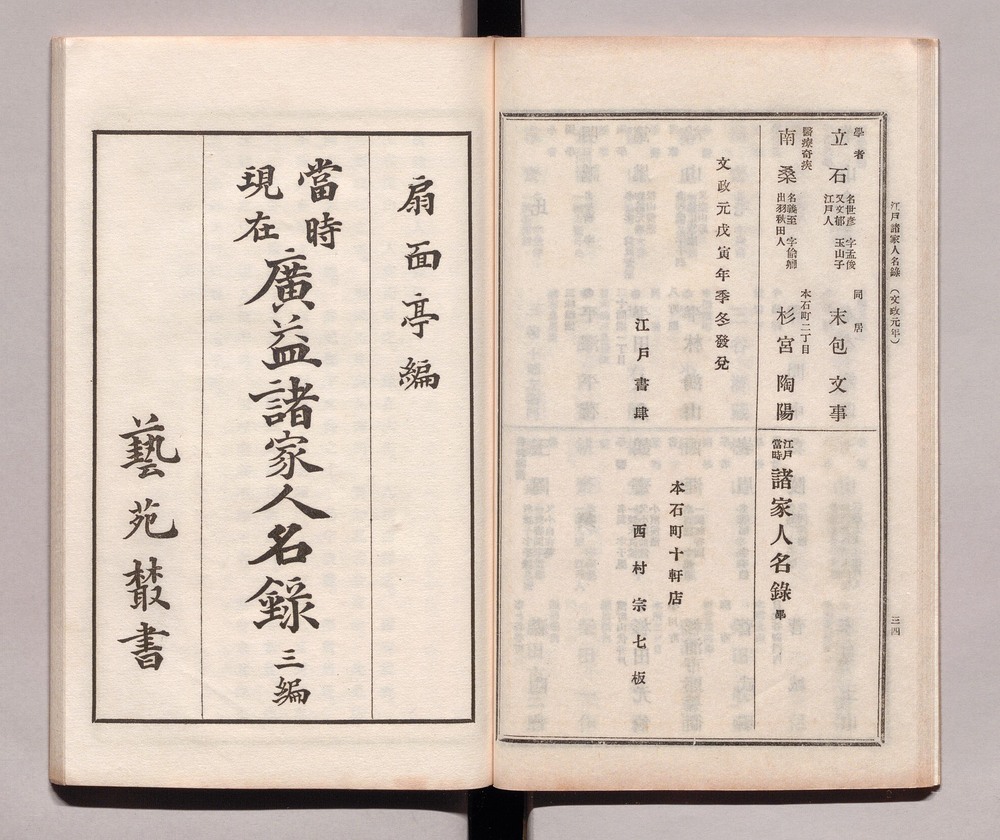 江戸諸家人名錄 (文政元年)
三四
學者
立石
名世彥 字孟俊
又文郁 玉山子
江戸人
同居
末包文事
醫療奇疾
南桑
名義至
出羽秋田人
本石町二丁目
杉宮陶陽
江戸
當時
諸家人名錄 畢
文政元戊寅年季冬發兌
江戸書肆
本石町十軒店
西村宗七板
扇面亭編
當時
現在
廣益諸家人名錄 三編
藝苑叢書